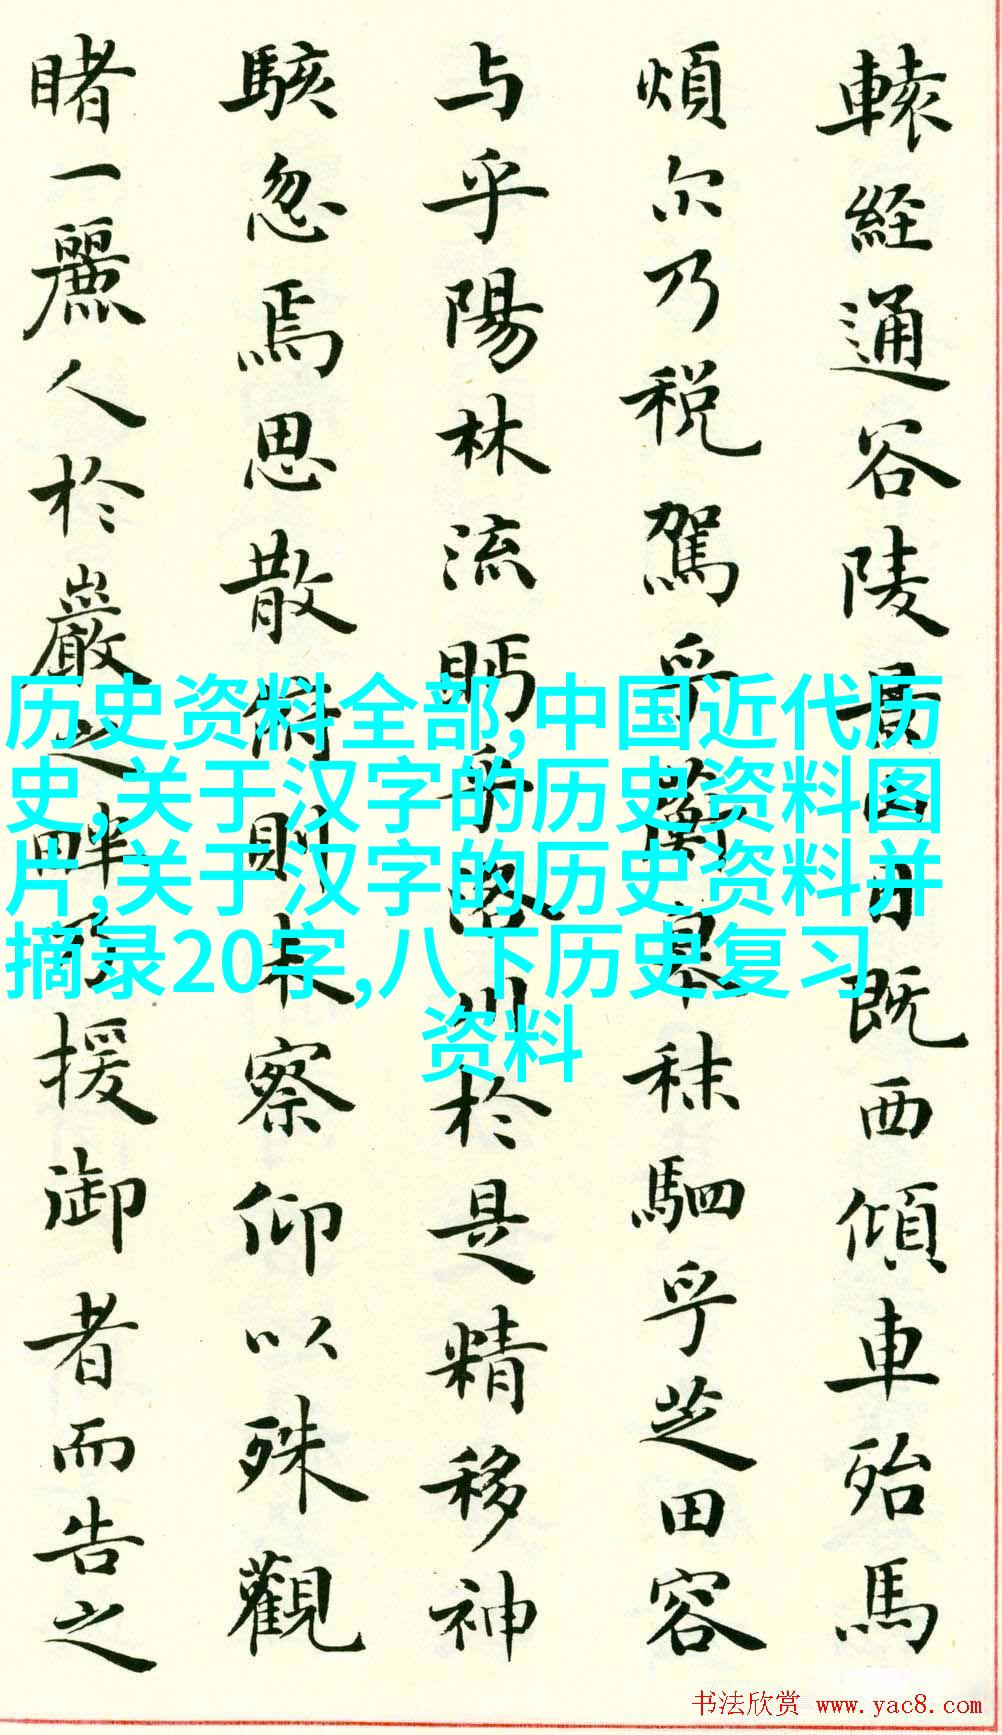 轅経通谷陵景山日既西傾車殆馬
煩尔乃税駕乎蘅皋秣駟乎芝田容
与乎陽林流眄乎洛川於是精移神
駭忽焉思散俯則未察仰以殊觀
睹一麗人於巖之畔乃援御者而告之
历史资料全部,中国近代历
史,关于汉字的历史资料图
片,关于汉字的历史资料并
摘录20字,八下历史复习
资料
书法欣赏 www.yac8.com